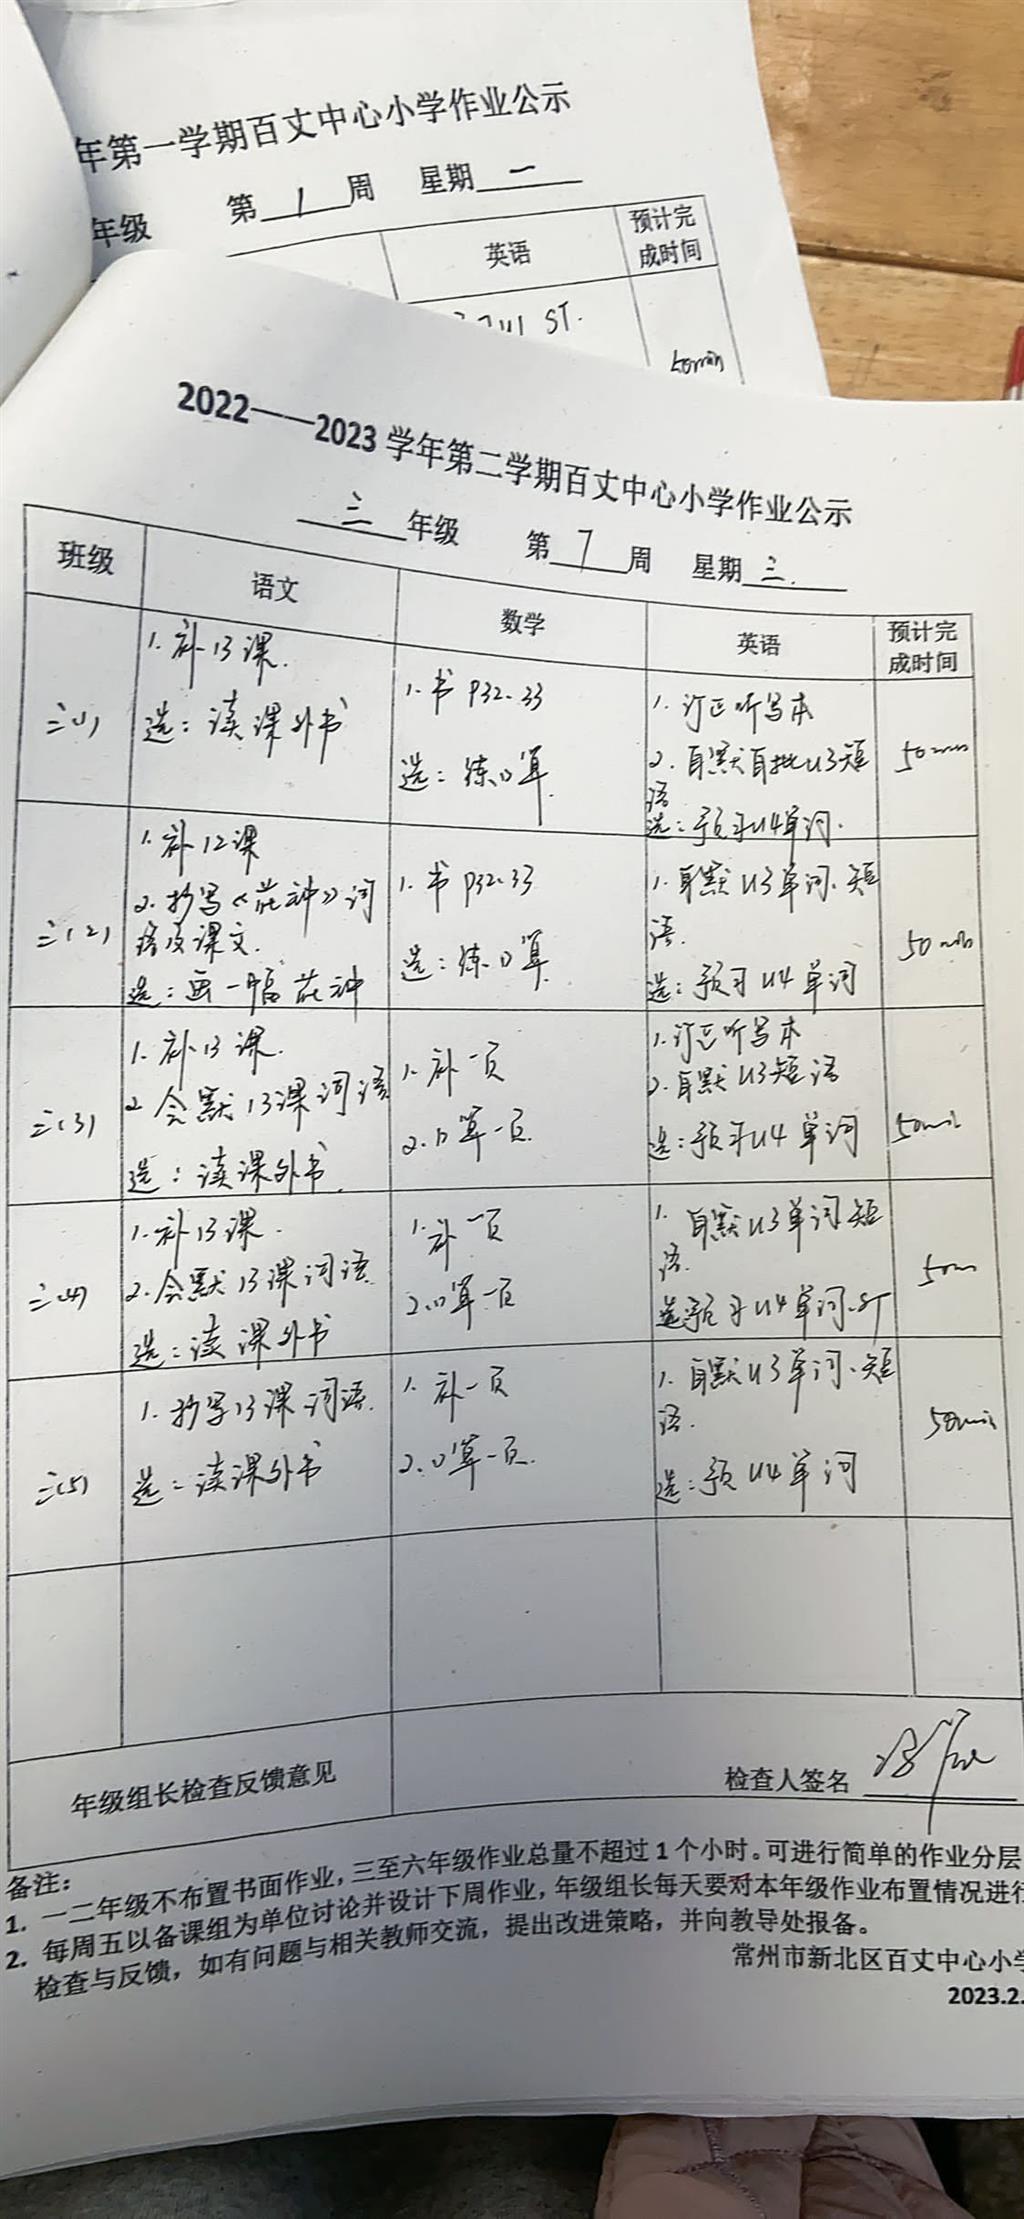 年第一学期百丈中心小学作业公示
年级 第 1 周 星期 一
英语 预计完
成时间
ST.
50min
2022——2023 学年第二学期百丈中心小学作业公示
三 年级 第 7 周 星期 三.
班级 语文 数学 英语 预计完
成时间
三(1)
1. 补13课.
选：读课外书
1. 书 P32.33
选：练口算
1. 订正听写本
2. 自默自批U3短
语
选：预习U4单词.
50min
三(2)
1. 补12课
2. 抄写《花钟》词
语及课文.
选：画一幅花钟
1. 书 P32.33
选：练口算
1. 自默U3单词、短
语.
选：预习U4单词
50min
三(3)
1. 补13课.
2. 会默13课词语
选：读课外书
1. 补一页
2. 口算一页.
1. 订正听写本
2. 自默U3短语
选：预习U4单词
50min
三(4)
1. 补13课.
2. 会默13课词语
选：读课外书
1. 补一页
2. 口算一页
1. 自默U3单词短
语.
选：预习U4单词.ST
50m
三(5)
1. 抄写13课词语.
选：读课外书
1. 补一页
2. 口算一页.
1. 自默U3单词、短
语.
选：预U4单词
50min
年级组长检查反馈意见
检查人签名
备注：
1. 一二年级不布置书面作业，三至六年级作业总量不超过 1 个小时。可进行简单的作业分层
2. 每周五以备课组为单位讨论并设计下周作业，年级组长每天要对本年级作业布置情况进行
检查与反馈，如有问题与相关教师交流，提出改进策略，并向教导处报备。
常州市新北区百丈中心小学
2023.2.